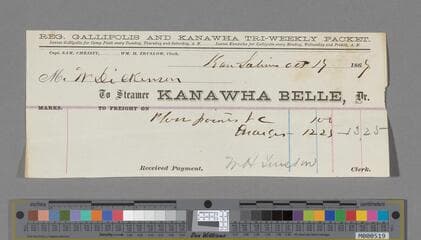 REG. GALLIPOLIS AND KANAWHA TRI-WEEKLY PACKET.
Leaves Gallipolis for Camp Piatt every Tuesday, Thursday and Saturday, A. M. Leaves Kanawha for Gallipolis every Monday, Wednesday and Friday, A. M.
Capt. SAM. CHRISTY, WM. H. TRUSLOW, Clerk.
Kan Salines Oct 19 1867
Mr W Dickinson
To Steamer KANAWHA BELLE, Dr.
MARKS. TO FREIGHT ON
Plow points &c 100
Charges 1225 13.25
Received Payment, Clerk.
inches
centimeters
M000519